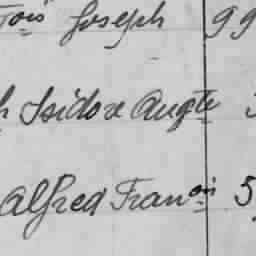 ois Joseph 99
Isidore Augte
Alfred Franois 5